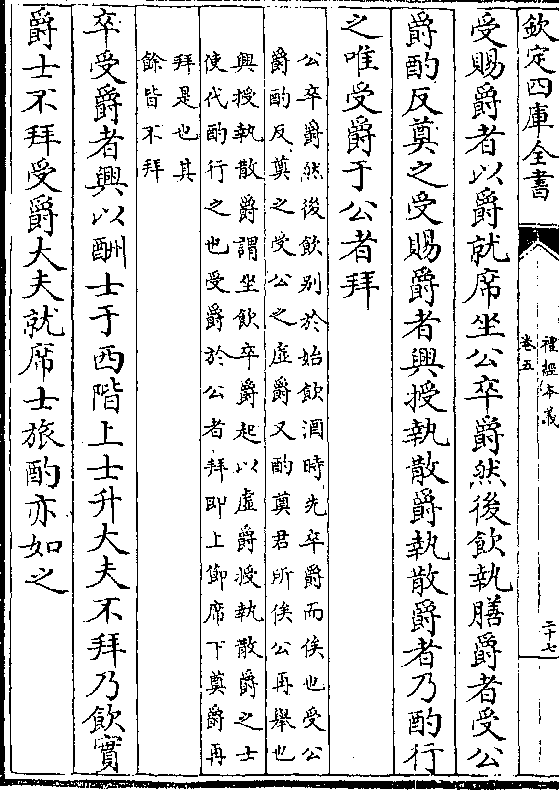 欽定四庫全書
禮經本義
卷五
二十七
受賜爵者以爵就席坐公卒爵然後飲執膳爵者受公
爵酌反奠之受賜爵者興授執散爵執散爵者乃酌行
之唯受爵于公者拜
公卒爵然後飲别於始飲酒時先卒爵而俟也受公
爵酌反奠之受公之虚爵又酌奠君所俟公再舉也
興授執散爵謂坐飲卒爵起以虚爵授執散爵之士
使代酌行之也受爵於公者拜即上節席下奠爵再
拜是也其
餘皆不拜
卒受爵者興以酬士于西階上士升大夫不拜乃飲實
爵士不拜受爵大夫就席士旅酌亦如之